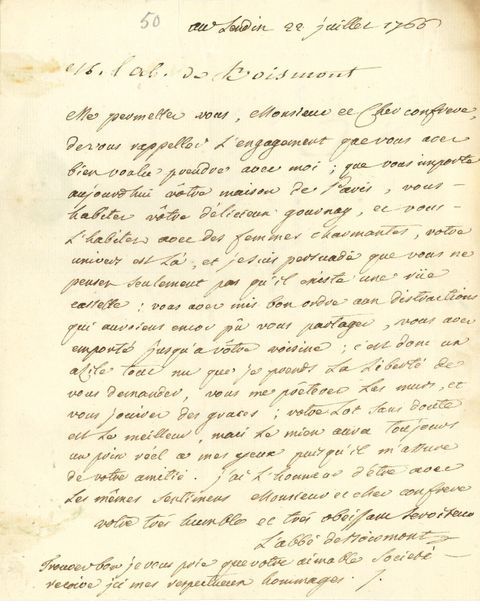 50
au Landin 22 juillet 1766
M. l'ab. de Boismont
Me permettez vous, Monsieur et Cher confrere,
de vous rappeller L'engagement que vous avez
bien voulu prendre avec moi; que vous importe
aujourdhui vôtre maison de Paris, vous
habitez vôtre délicieux gournay, et vous
L'habitez avec des femmes charmantes, votre
univers est Là, et je suis persuadé que vous ne
pensez seulement pas qu'il existe une rüe
cassette: vous avez mis bon ordre aux distractions
qui auroient encor pû vous partager, vous avez
emporté jusqu'a vôtre voisine; c'est donc un
azile tout nu que je prends La Liberté de
vous demander, vous me prêterez Les murs, et
vous jouirez des graces; votre Lot sans doute
est Le meilleur, mais Le mien aura toujours
un prix réel a mes yeux puisqu'il m'assure
de votre amitié. j'ai L'honneur d'être avec
Les mêmes sentimens Monsieur et cher confrere
votre tres humble et tres obeissant serviteur
L'abbé de Boismont
Trouvez bon je vous prie que votre aimable Societé
recoive ici mes respectueux hommages.